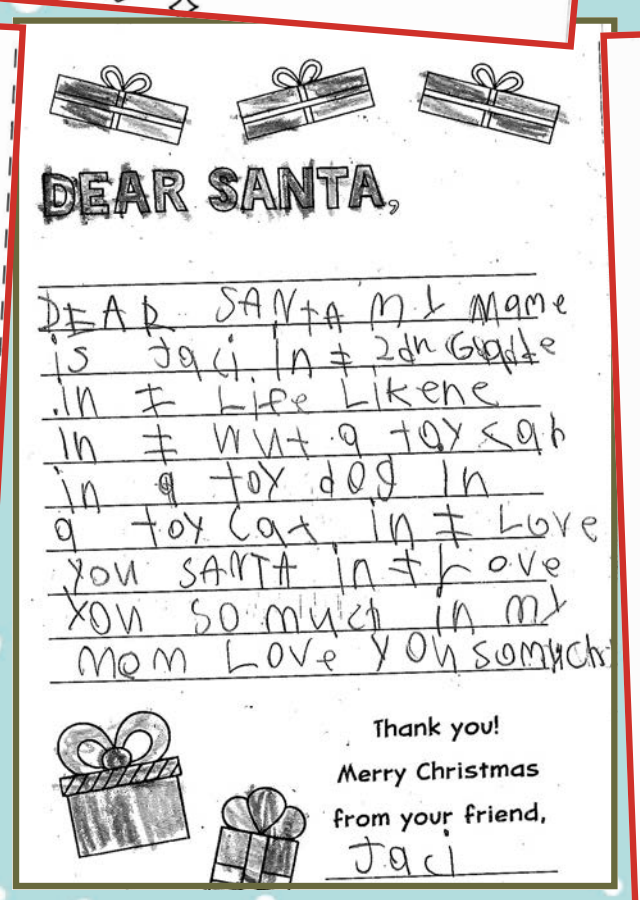 DEAR SANTA,
DEAR SANtA MY Mame
is Jaci in I 2dn Gradde
in I Life Likene
in I Wut a toy cab
in a toy dog in
a toy Cat in I Love
you SANTA in I Love
you so much in my
mom Love you somuch
Thank you!
Merry Christmas
from your friend,
Jaci